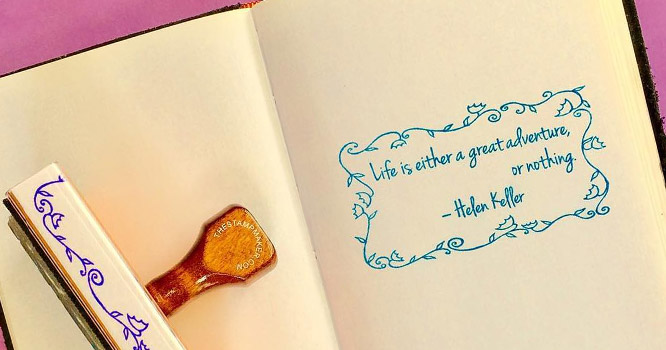 Life is either a great adventure,
or nothing.
– Helen Keller
THESTAMPMAKER.COM